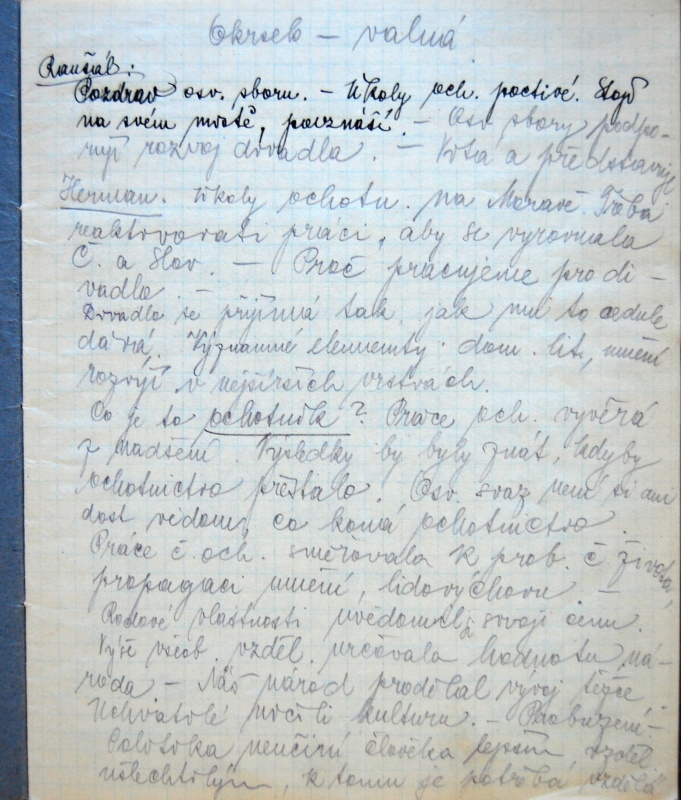 Okrsek – valná
Roušál:
Pozdrav osv. sboru. – Úkoly och. poctivé. Stojí
na svém místě, povznáší. – Osv. sbory podpo-
rují rozvoj divadla. – Vítá a představuje
Herman. Úkoly ochotn. na Moravě. Třeba
práci, aby se vyrovnala
Č. a Slov. – Proč pracujeme pro di-
vadlo
Divadlo se přijímá tak, jak mi to cedule
dává. Významné elementy dom. lit., umění
rozvíjí v nejširších vrstvách.
Co je to ochotník? Práce och. vyvěrá
z nadšení. Výsledky by byly znát, kdyby
ochotnictvo přestalo. Osv. svaz není si ani
dost vědom, co koná ochotnictvo
Práce č. och. směřovala k prob. č. života,
propagaci umění, lidovýchovu –
Rodové vlastnosti svoji cenu.
Výše všeob. vzděl. určovala hodnotu ná-
roda – Náš národ prodělal vývoj těžce
ničili kulturu. –
neučiní člověka lepším, vzděl.
ušlechtilým, k tomu je potřeba